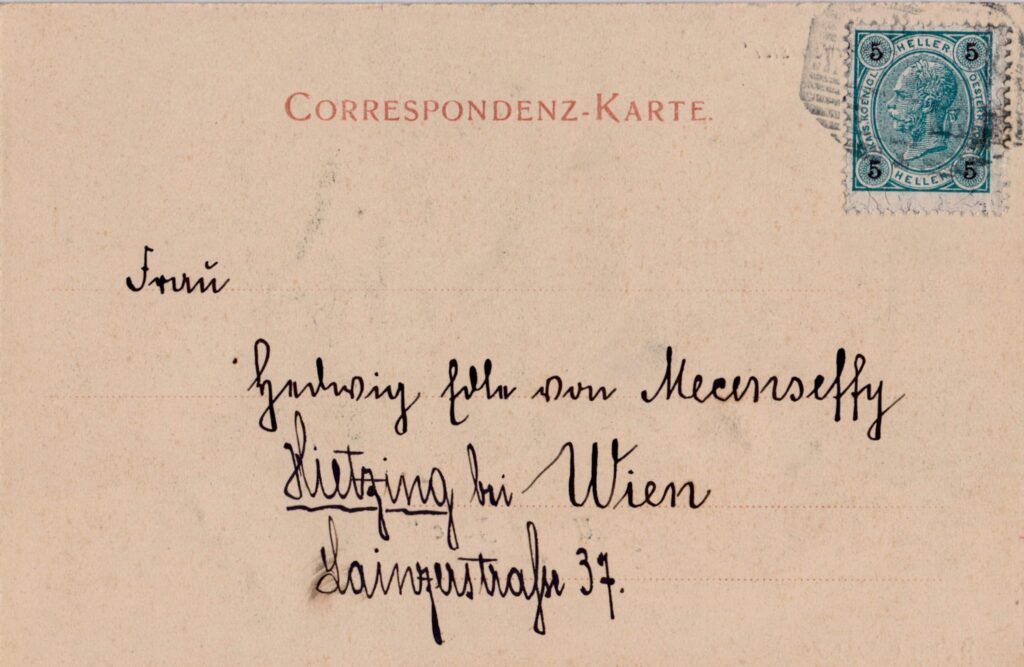 CORRESPONDENZ-KARTE.
5 HELLER 5
KAIS KOENIGL OESTERR
5 HELLER 5
Frau
Hedwig Edle von Mecenseffy
Hietzing bei Wien
Lainzerstraße 37.